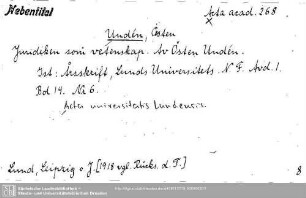 Nebentitel
Acta acad. 268
x
Undén, Östen
Juridiken som vetenskap. Av Östen Undén.
Ist: Årsskrift, Lunds Universitets. N. F. Avd. 1.
Bd 14. Nr 6.
Acta universitatis Lundensis.
Lund, Leipzig o. J. [1918 vgl. Rücks. d. T.]
8
Sächsische Landesbibliothek -
Staats- und Universitätsbibliothek Dresden